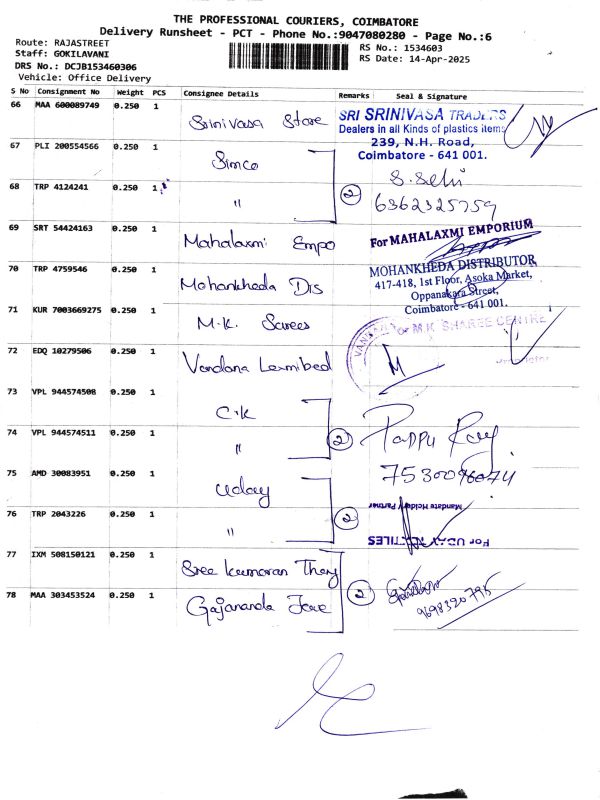 THE PROFESSIONAL COURIERS, COIMBATORE
Delivery Runsheet - PCT - Phone No.:9047080280 - Page No.:6
Route: RAJASTREET
Staff: GOKILAVANI
DRS No.: DCJB153460306
Vehicle: Office Delivery
RS No.: 1534603
RS Date: 14-Apr-2025
S No Consignment No Weight PCS Consignee Details Remarks Seal & Signature
66 MAA 600089749 0.250 1 Srinivasa Store
SRI SRINIVASA TRADERS
Dealers in all Kinds of plastics items
239, N.H. Road,
Coimbatore - 641 001.
67 PLI 200554566 0.250 1 Simco
S. Selvi
68 TRP 4124241 0.250 1 " 2
6362325759
69 SRT 54424163 0.250 1 Mahalaxmi Empo
For MAHALAXMI EMPORIUM
70 TRP 4759546 0.250 1 Mohankheda Dis
MOHANKHEDA DISTRIBUTOR
417-418, 1st Floor, Asoka Market,
Oppanakara Street,
Coimbatore - 641 001.
71 KUR 7003669275 0.250 1 M.K. Sarees
M.K SHAREE CENTRE
72 EDQ 10279506 0.250 1 Vandana
73 VPL 944574508 0.250 1 C.K
74 VPL 944574511 0.250 1 " 2
Pappu Roy
75 AMD 30083951 0.250 1 Uday
7530096074
76 TRP 2043226 0.250 1 " 2
Mandate Holder / Partner
For UDAY TEXTILES
77 IXM 508150121 0.250 1 Sree kumaran Thang
78 MAA 303453524 0.250 1 Gajananda Jewe 2
9698320795